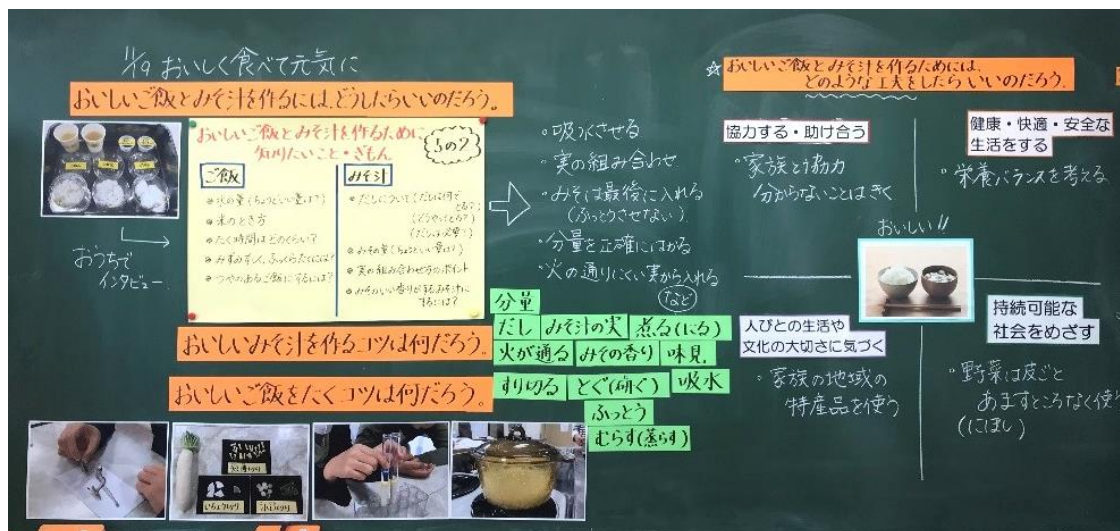 11/19 おいしく食べて元気に
おいしいご飯とみそ汁を作るには、どうしたらいいのだろう。
おうちで
インタビュー
おいしいご飯とみそ汁を作るために
知りたいこと・ぎもん
5の2
ご飯
水の量(ちょうどいい量は?)
米のとき方
たく時間はどのくらい?
みずみずしく、ふっくらたくには?
つやのあるご飯にするには?
みそ汁
だしについて(だしは何でとる?)
(どうやってとる?)
(だしは必要?)
みその量(ちょうどいい量は?)
実の組み合わせ方のポイント
みそのいい香りがするみそ汁に
するには?
・吸水させる
・実の組み合わせ
・みそは最後に入れる
(ふっとうさせない)
・分量を正確にはかる
・火の通りにくい実から入れる
など
おいしいみそ汁を作るコツは何だろう。
おいしいご飯をたくコツは何だろう。
分量
だし みそ汁の実 煮る(にる)
火が通る みその香り 味見
すり切る とぐ(研ぐ) 吸水
ふっとう
むらす(蒸らす)
いちょう切り
☆おいしいご飯とみそ汁を作るためには、
どのような工夫をしたらいいのだろう。
協力する・助け合う
・家族と協力
分からないことはきく
健康・快適・安全な
生活をする
・栄養バランスを考える
おいしい!!
人びとの生活や
文化の大切さに気づく
・家族の地域の
特産品を使う
持続可能な
社会をめざす
・野菜は皮ごと
あますところなく使う
(にぼし)